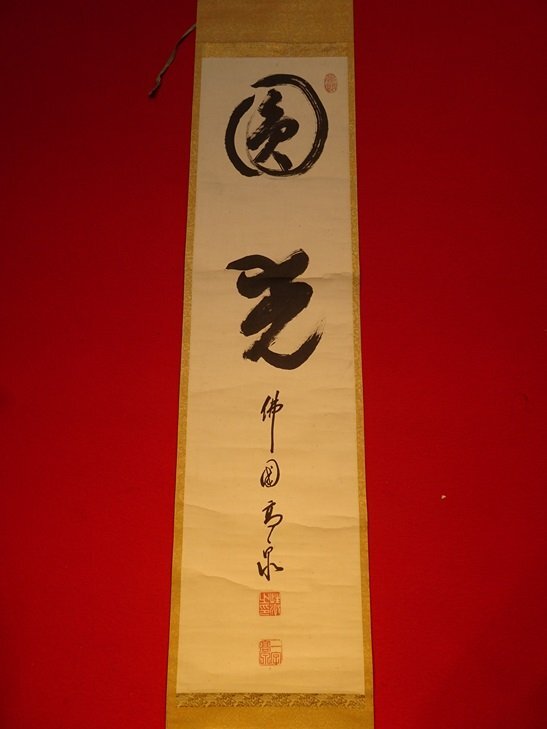 圓覺
佛國高泉